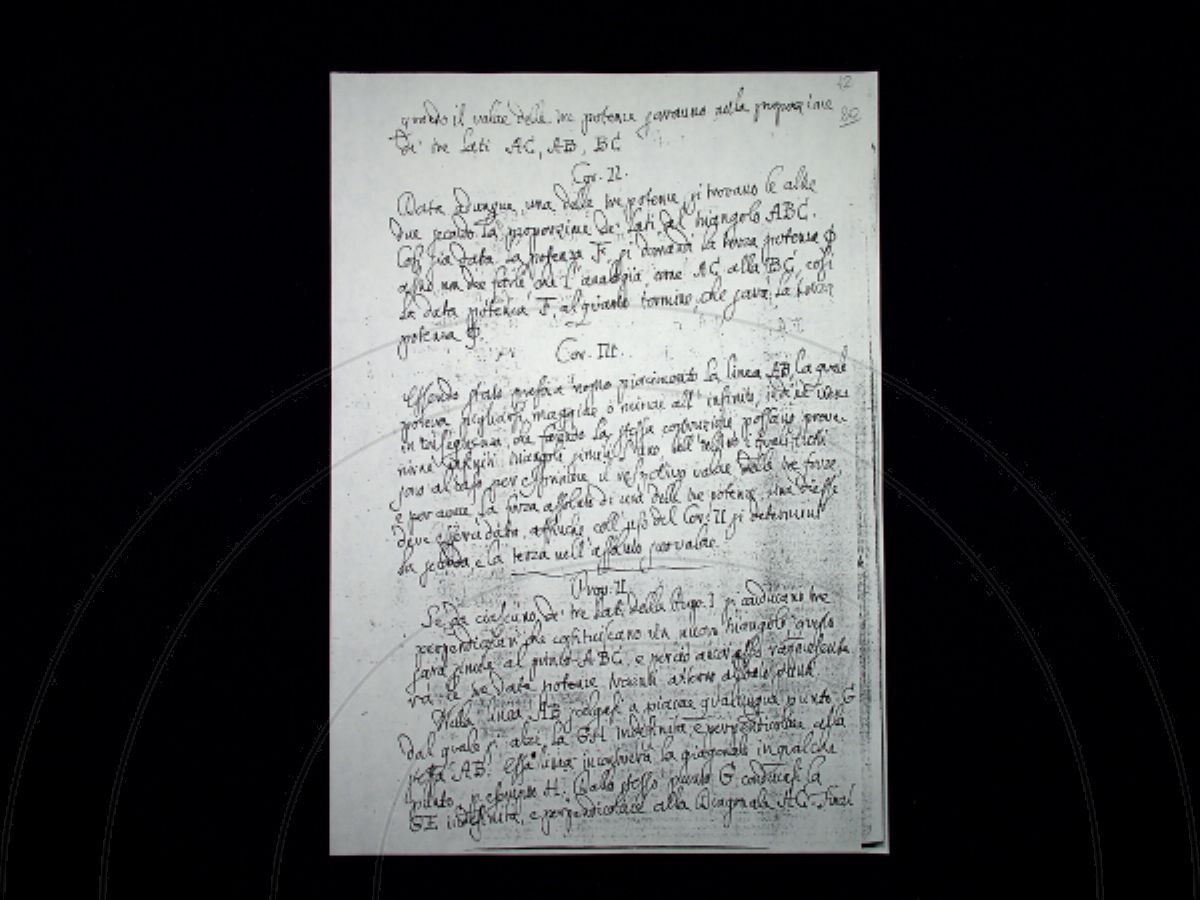 12
80
quando il valore delle tre potenze saranno nella proporzione
de' tre lati AC, AB, BC
Cor. II.
Data adunque, una delle tre potenze, si trovano le altre
due secondo la proporzione de' lati del triangolo ABC.
Così già data la potenza F, si troverà la terza potenza φ
come AC alla BC così
la data potenza F, al quarto termine, che sarà la terza
potenza φ.
Cor. III.
Essendo stata presa a nostro piacimento la linea AB la quale
poteva pigliarsi maggiore o minore all' infinito, ne viene
in conseguenza, che facendo la stessa costruzione possano
infiniti triangoli simili
per esprimere il respettivo valore delle tre forze,
e per avere la forza assoluta di una delle tre potenze, una d'esse
deve essere data, affinché coll' uso del Cor. II si determini
la seconda, e la terza nell' assoluto suo valore.
Prop. II
Se da ciascuno de' tre lati della Prop. I si conducano tre
perpendicolari che costituiscano un nuovo triangolo, questo
sarà simile al primo ABC, e perciò ancor esso rappresente-
rà le tre date potenze
Nella linea AB scelgasi a piacere qualunque punto G
dal quale s' alzi la GH indefinita e perpendicolare alla
stessa AB. Essa linea incontrerà la diagonale in qualche
punto, H. Dallo stesso punto G conducasi la
GE indefinita, e perpendicolare alla Diagonale AC.